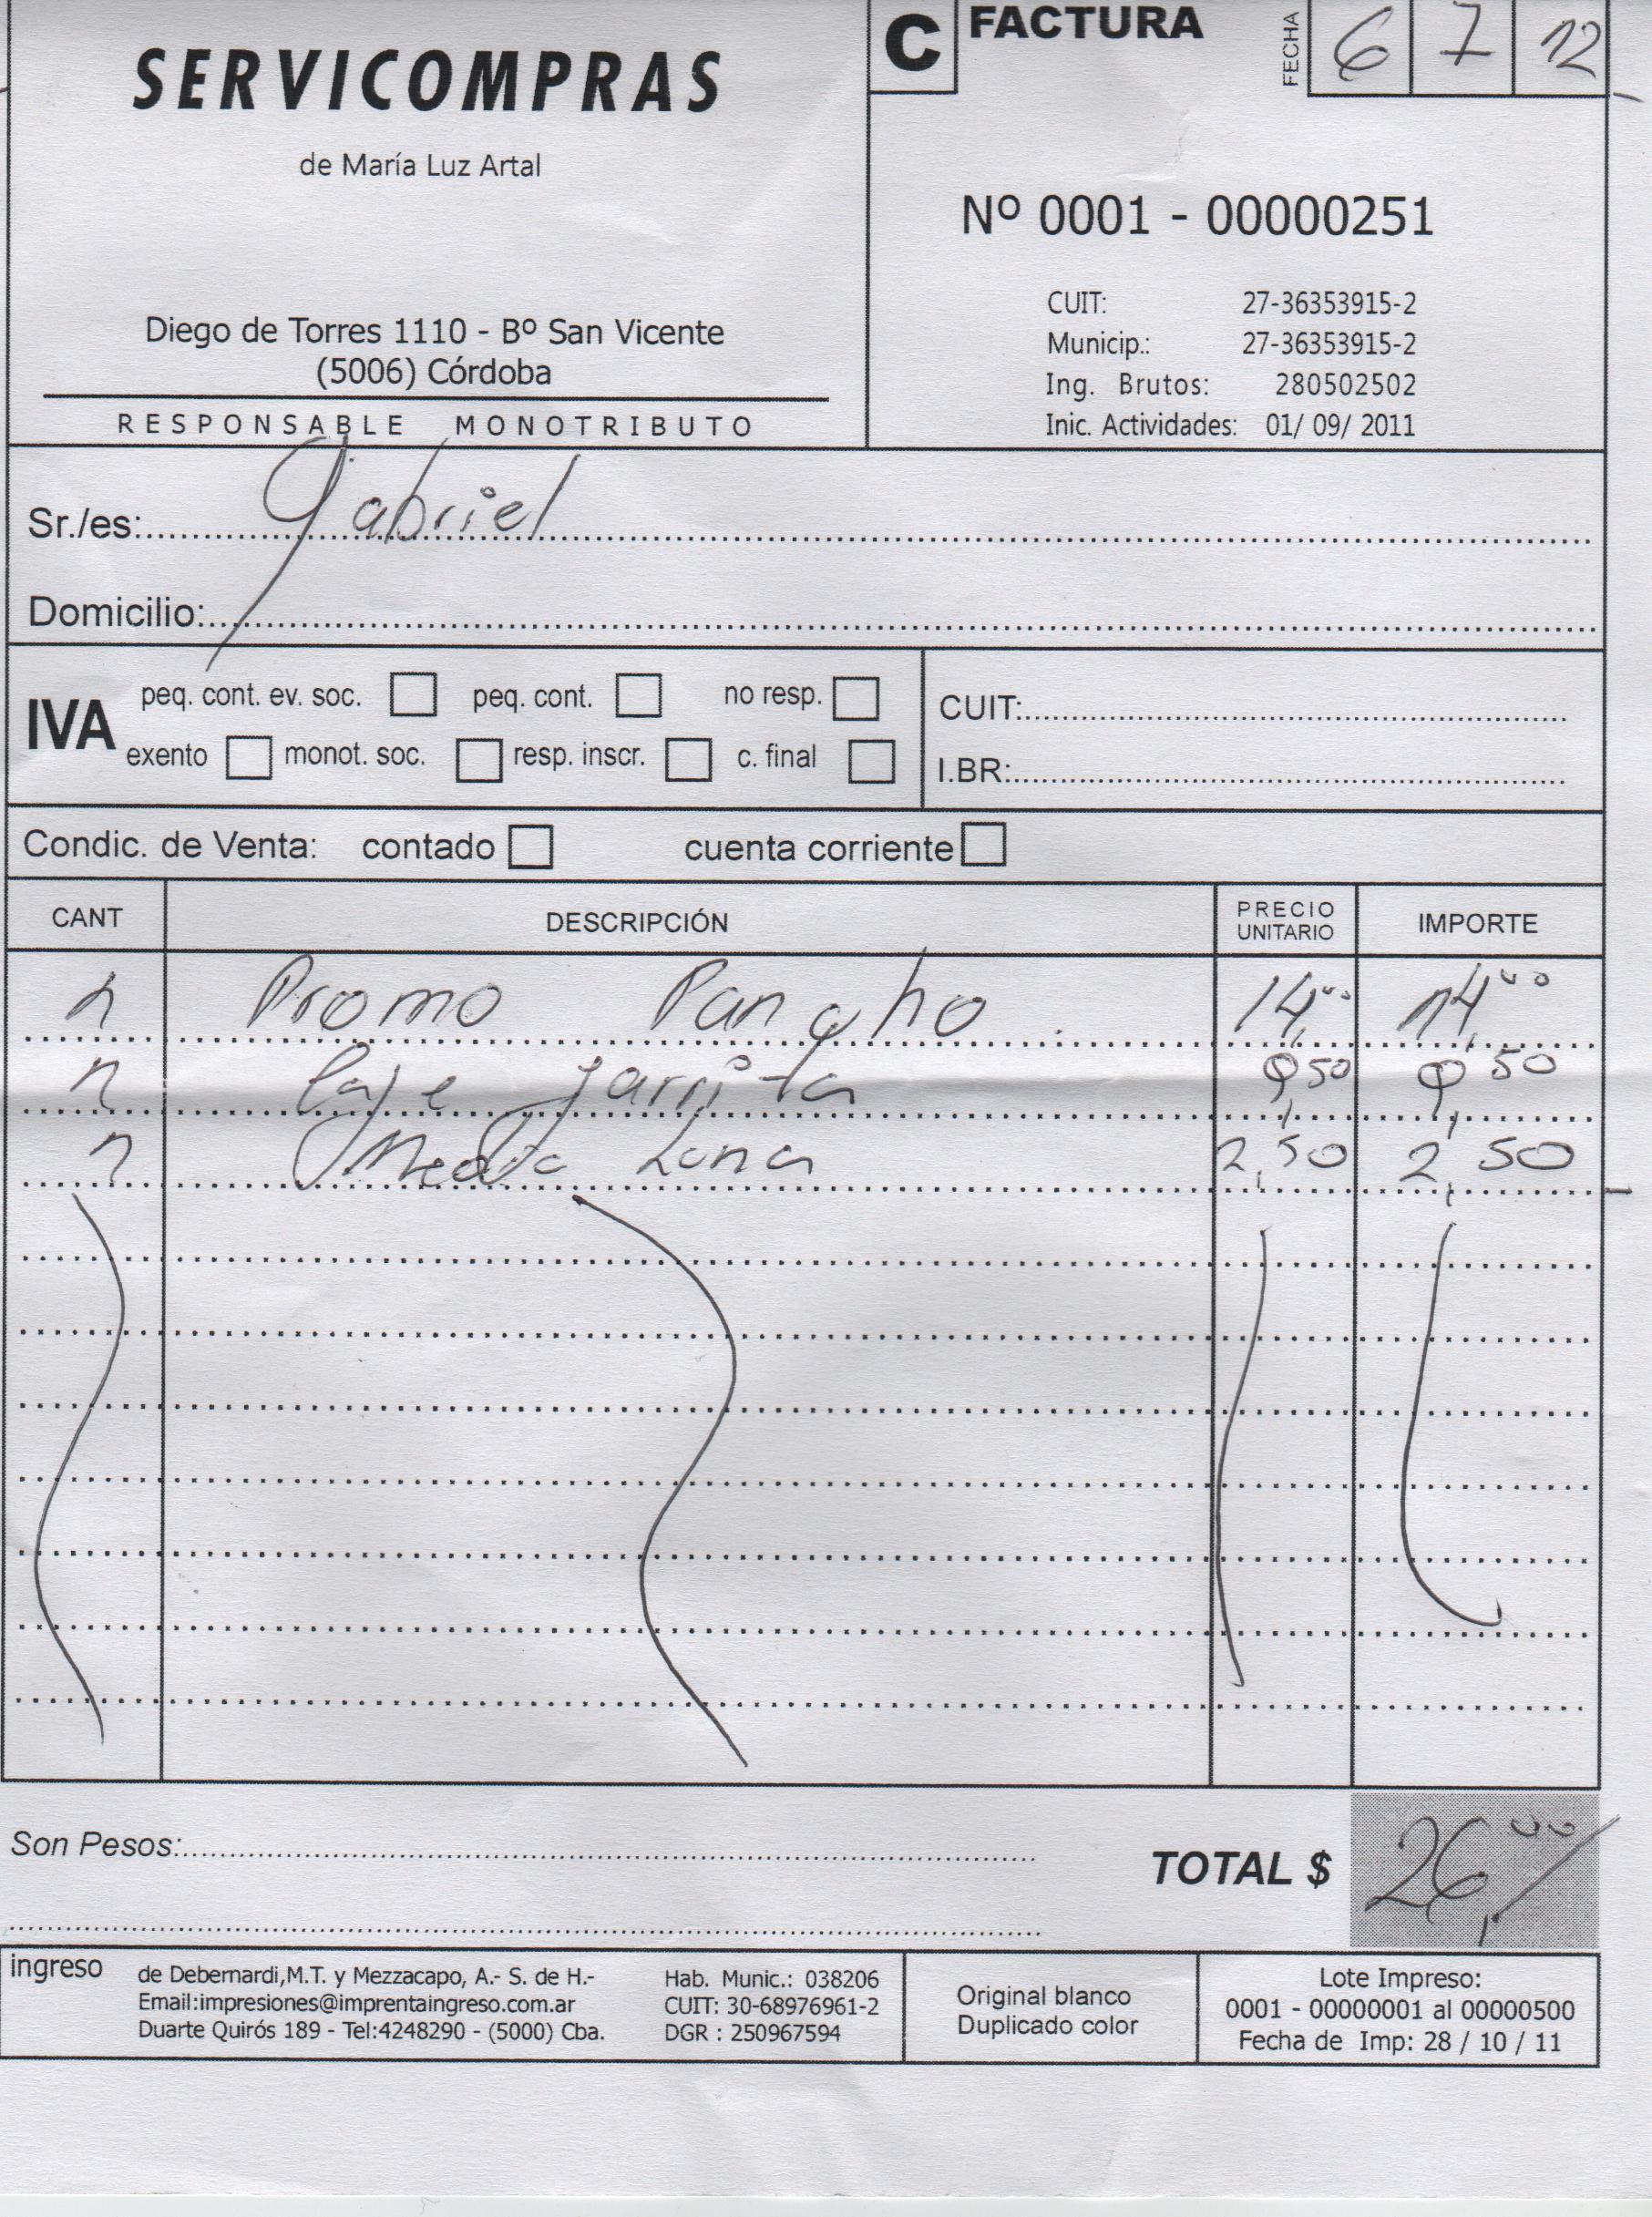 SERVICOMPRAS
de María Luz Artal
Diego de Torres 1110 - Bº San Vicente
(5006) Córdoba
RESPONSABLE MONOTRIBUTO
C FACTURA
FECHA 6 7 12
Nº 0001 - 00000251
CUIT: 27-36353915-2
Municip.: 27-36353915-2
Ing. Brutos: 280502502
Inic. Actividades: 01/ 09/ 2011
Sr./es: Gabriel
Domicilio:
IVA
peq. cont. ev. soc. peq. cont. no resp.
exento monot. soc. resp. inscr. c. final
CUIT:
I.BR:
Condic. de Venta: contado cuenta corriente
CANT DESCRIPCIÓN PRECIO UNITARIO IMPORTE
1 Promo Pancho 14,00 14,00
1 Cafe Jarrita 9,50 9,50
1 Media Luna 2,50 2,50
Son Pesos:
TOTAL $ 26,00
ingreso
de Debernardi,M.T. y Mezzacapo, A.- S. de H.-
Email:impresiones@imprentaingreso.com.ar
Duarte Quirós 189 - Tel:4248290 - (5000) Cba.
Hab. Munic.: 038206
CUIT: 30-68976961-2
DGR : 250967594
Original blanco
Duplicado color
Lote Impreso:
0001 - 00000001 al 00000500
Fecha de Imp: 28 / 10 / 11